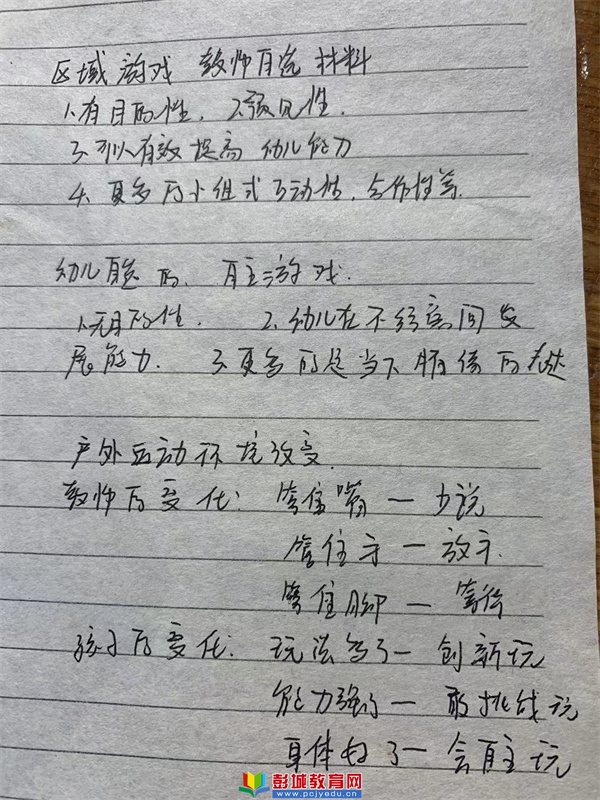 区域游戏 教师自选 材料
1.有目的性. 2.预见性.
3.可以有效提高 幼儿能力
4. 更多的小组式互动性, 合作性等.
幼儿自选的. 自主游戏.
1.无目的性. 2.幼儿在不经意间发
展能力. 3.更多的是当下情绪的表达
户外运动环境改变.
教师的变化: 管住嘴一少说
管住手一放手.
管住脚一等待
孩子的变化: 玩法多了一创新玩
能力强了一敢挑战玩
身体好了一会自主玩
彭城教育网
www.pcjyedu.cn